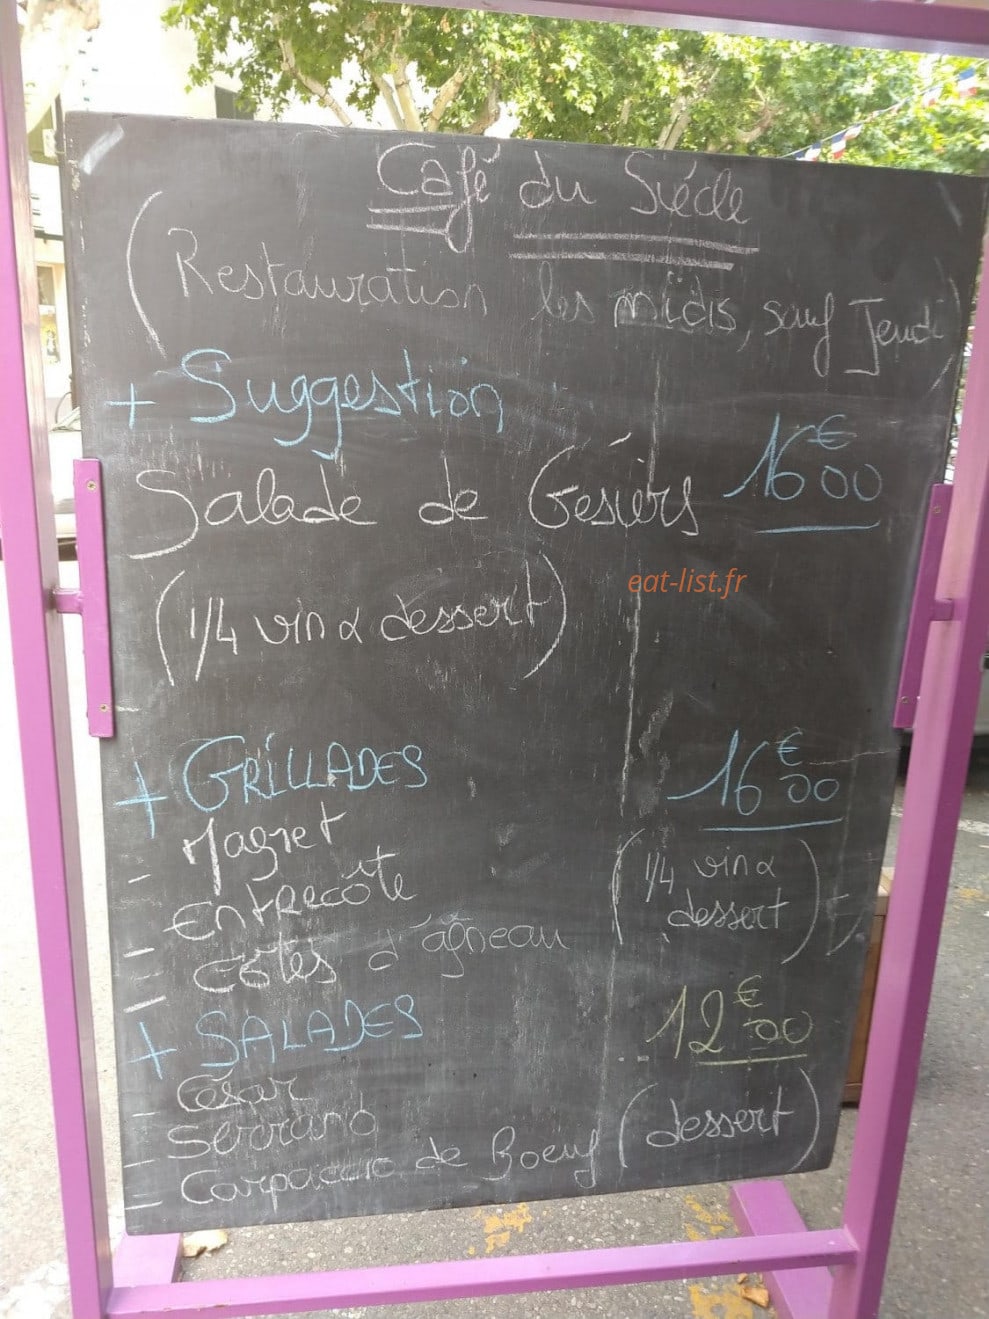 Café du Siécle
(Restauration les midis, sauf Jeudi)
+ Suggestion
Salade de Gésiers 16€00
(1/4 vin & dessert)
eat-list.fr
+ GRILLADES 16€00
- Magret
- Entrecôte
- Côtes d'agneau
(1/4 vin &
dessert)
+ SALADES 12€00
- César
- Serrano
- Carpaccio de Boeuf (dessert)